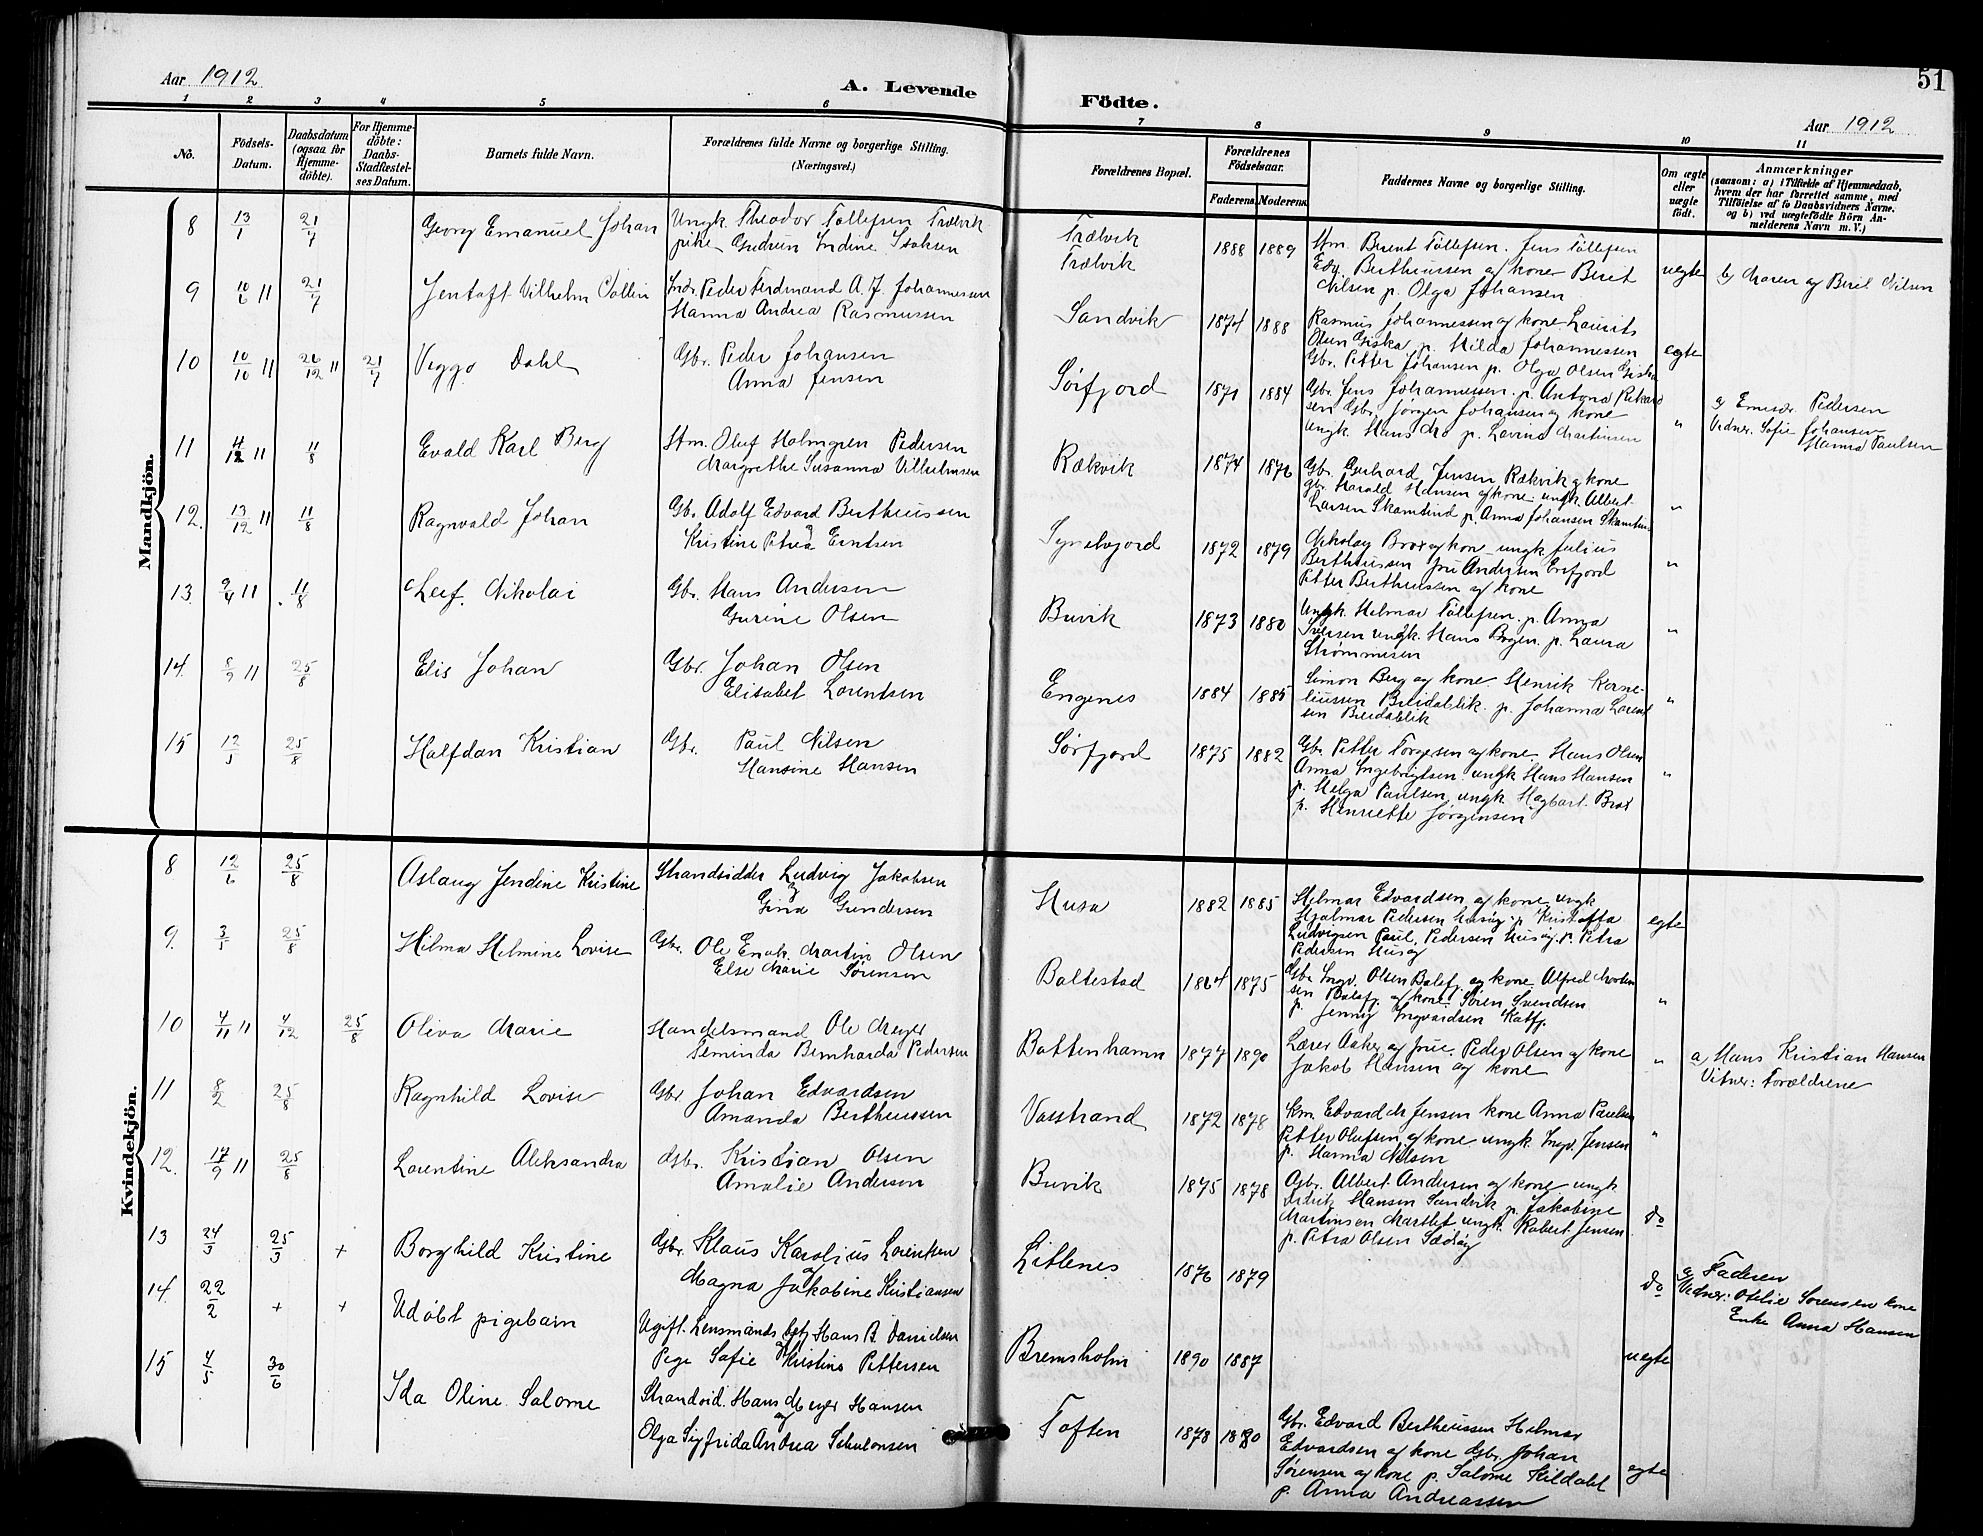 Aar 1912
A. Levende Födte.
51
Aar 1912
1 2 3 4 5 6 7 8 9 10 11
No.
Födsels-Datum.
Daabsdatum (ogsaa for Hjemme-döbte).
For Hjemme-döbte: Daabs-Stadfæstel-ses Datum.
Barnets fulde Navn.
Forældrenes fulde Navne og borgerlige Stilling. (Næringsvei.)
Forældrenes Bopæl.
Forældrenes Födselsaar.
Faderens. Moderens.
Faddernes Navne og borgerlige Stilling.
Om ægte eller uægte födt.
Anmærkninger
(saasom: a) i Tilfælde af Hjemmedaab, hvem der har forrettet samme, med Tilföielse af to Daabsvidners Navne. og b) ved uægtefödte Börn Anmelderens Navn m. V.)
Mandkjön.
8 13/1 21/7 Georg Emanuel Johan
Ungk Theodor Tollefsen Trælvik
pike Gudrun Indine Isaksen
Trælvik
Trælvik
1888 1889
Stm. Berent Tollefsen. Jens Tollefsen
Edv. Bertheussen og kone Beret
Nilsen p. Olga Johansen
uegte
b) Maren og Beret Nilsen
9 10/6 11 21/7 Jentoft Vilhelm Collin
Indr. Peder Ferdinand A. J. Johannessen
Hanna Andrea Rasmussen
Sandvik
1874 1888
Rasmus Johannessen og kone Laurits
Olsen Giska p. Hilda Johannessen
egte
10 10/10 11 26/12 11 21/7 Viggo Dahl
Gbr. Peder Johansen
Anna Jensen
Sørfjord
1871 1884
Gbr. Petter Johansen p. Olga Olsen Giska
Gbr. Jens Johannessen p. Antona Rikard
sen Gbr. Jørgen Johansen og kone
Ungk. Hans do p. Lovina Martinsen
"
a) Emisær Pedersen
Vidner. Sofie Johansen
Hanna Paulsen
11 4/12 11 11/8 Evald Karl Berg
Stm. Oluf Holmgren Pedersen
Margrethe Susanna Vilhelmsen
Rækvik
1874 1876
Gbr. Gerhard Jensen Rækvik og kone
Gbr. Harald Hansen og kone. ungk. Albert
Larsen Skamtind p. Anna Johansen Skamtin.
"
12. 13/12 11 11/8 Ragnvald Johan
Gb. Adolf Edvard Bertheussen
Kristine Petrea Erntsen
1872 1879
Nikolay Brox og kone ungk Julius
Bertheussen fru Andersen Ersfjord
Petter Bertheussen og kone
"
13. 9/4 11 11/8 Leif Nikolai
Gbr. Hans Andersen
Gurine Olsen
Buvik
1873 1880
Ungk. Helmar Tollefsen. p. Anna
Iversen ungk. Hans Bogen. p. Laura
Strømmesen
"
14. 8/9 11 25/8 Elis Johan
Gbr. Johan Olsen
Elisabet Lorentsen
Engenes
1884 1885
Simon Berg og kone. Henrik Korne-
liussen Breidablik. p. Johanna Lorent
sen Breidablik
"
15 12/5 25/8 Halfdan Kristian
Gbr. Paul Nilsen
Hansine Hansen
Sørfjord
1875 1882
Gbr. Petter Torgesen og kone. Hans Olsen
Anna Ingebrigtsen. ungk Hans Hansen
p. Helga Paulsen. ungk Hagbart Brox
p. Henriette Jørgensen
"
Kvindekjön.
8 12/6 25/8 Aslaug Jendine Kristine
Strandsidder Ludvig Jakobsen
og
Gina Gundersen
Husø
1882 1885
Helmar Edvardsen og kone ungk
Hjalmar Pedersen Husøy. p. Kristoffa
Ludvigsen Paul Pedersen Husøy. p. Petra
Pedersen Husøy
egte
9. 3/5 25/8 Hilma Helmine Lovise
Gbr. Ole Enok. Martin Olsen
Else Marie Sørensen
Baltestad
1864 1875
Gbr Ingv. Olsen Balsfj. og kone Alfred Morten
sen Balsfj. og kone. Søren Svendsen
p. Jenny Ingvardsen Katfj.
"
10 4/11 11 4/12 25/8 Oliva Marie
Handelsmand Ole Meyer
Seminda Bernharda Pedersen
Bottenhamn
1877 1890
Lærer Aaker og frue. Peder Olsen og kone
Jakob Hansen og kone
"
a Hans Kristian Hansen
Vitner: Forældrene
11 8/2 25/8 Ragnhild Lovise
Gbr Johan Edvardsen
Amanda Bertheussen
Vasstrand
1872 1878
Km. Edvard M Jensen kone Anna Paulsen
Petter Olufsen og kone ungk. Ingv. Jensen
p. Hanna Nilsen
"
12. 17/9 11 25/8 Lorentine Aleksandra
Gbr. Kristian Olsen
Amalie Andersen
Buvik
1875 1878
Gbr. Albert Andersen og kone ungk
Hansen Sandvik p. Jakobine
Martinsen ungk. Robert Jensen
p. Petra Olsen
do
13 24/3 25/3 + Borghild Kristine
Gbr. Klaus Karolius Lorentsen
og
Magna Jakobine Kristiansen
Litlenes
1876 1879
do
a Faderen
Vidner: Otelie Sørensen kone
Enke Anna Hansen
14. 22/2 + + Udøbt pigebarn
Ugift. Lensmands betj Hans B. Danielsen
og
Pige Sofie Kristine Pettersen
Bremsholm
1890 1887
uegte
15 4/5 30/6 Ida Oline Salome
Strandsid. Hans Meyer Hansen
og
Olga Sigfrida Andrea Schulonsen
Toften
1878 1880
Gbr. Edvard Bertheussen Helmar
Edvardsen og kone Gbr. Johan
Sørensen og kone p. Salome Kildahl
p. Anna Andreassen
egte